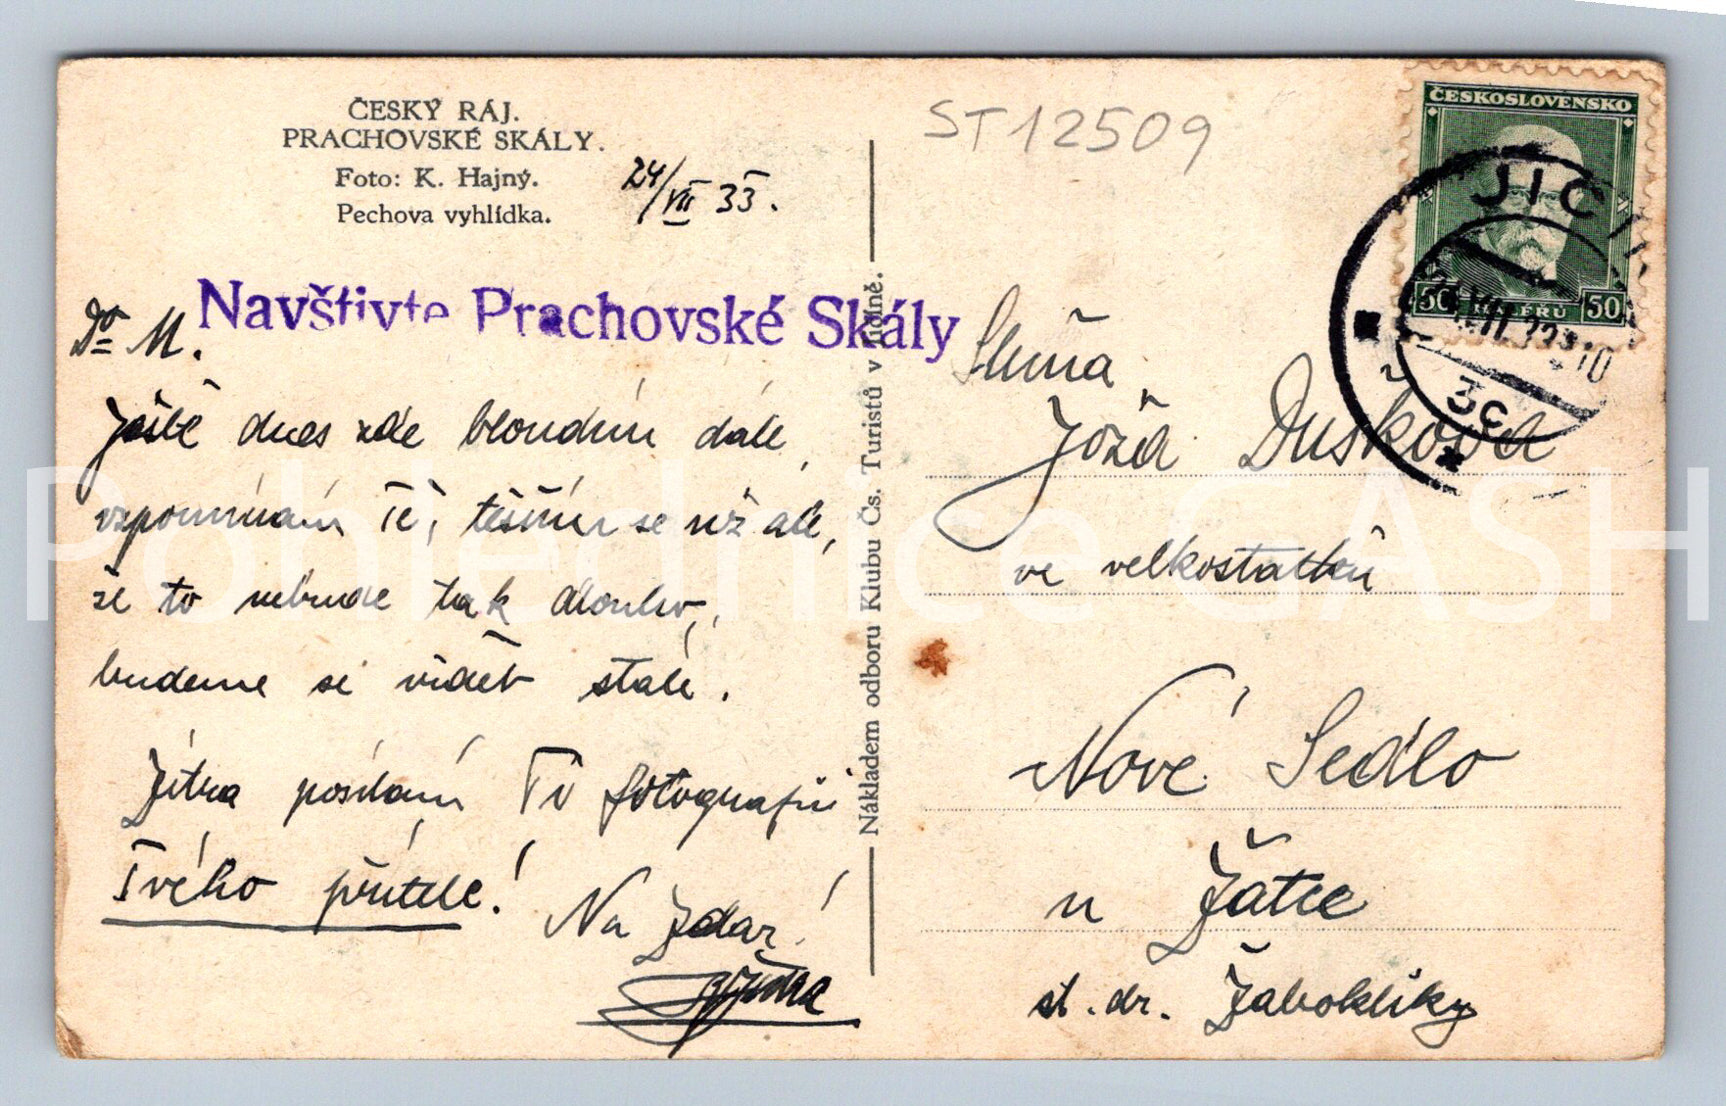 ČESKÝ RÁJ.
PRACHOVSKÉ SKÁLY.
Foto: K. Hajný.
Pechova vyhlídka.
24/VII 33.
ST12509
Navštivte Prachovské Skály
Do M.
Ještě dnes zde bloudím dále,
vzpomínám Tě, těším se už ale,
že to nebude tak dlouho,
budeme se vídět stále.
Zítra posílám Ti fotografii
Tvého přítele!
Na Zdar!
Nákladem odboru Klubu Čs. Turistů v Jičíně.
ČESKOSLOVENSKO
50 HALÉŘŮ 50
JIČÍN
3c
Slečna
Joža Dušková
ve velkostatku
Nové Sedlo
u Žatce
st. dr. Žabokliky
Pohlednice GASH